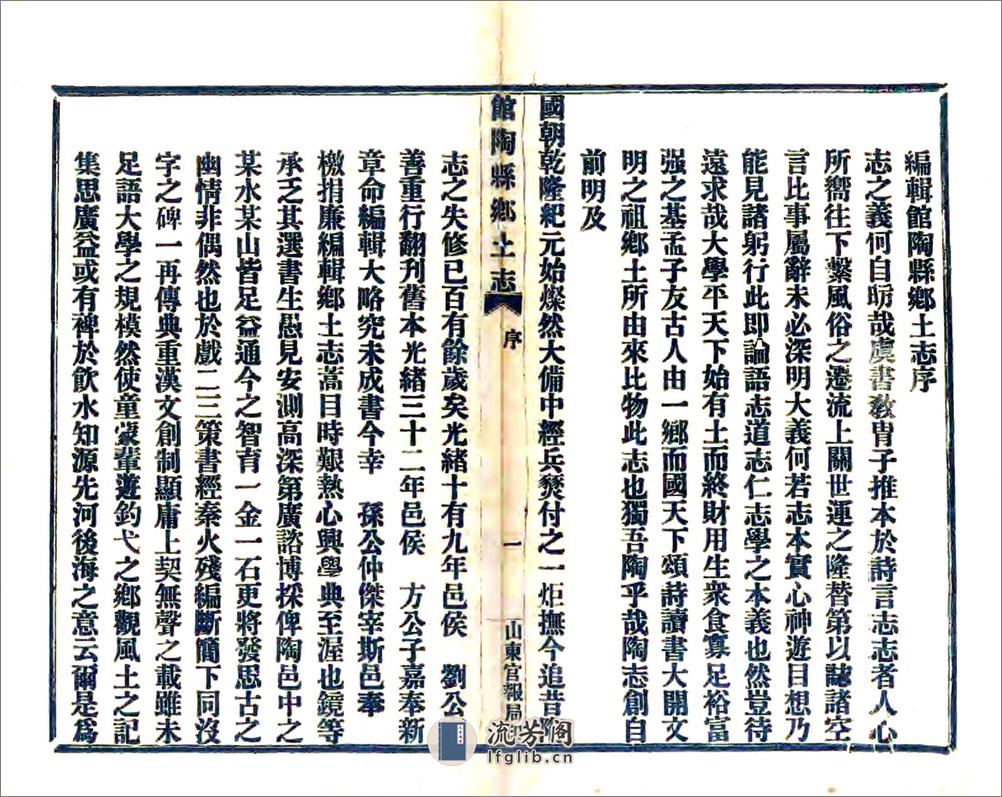 編輯館陶縣鄉土志序
志之義何自昉哉虞書敎胄子推本於詩言志志者人心
所嚮往下繫風俗之遷流上關世運之隆替第以誌諸空
言比事屬辭未必深明大義何若志本實心神遊目想乃
能見諸躬行此即論語志道志仁志學之本義也然豈待
遠求哉大學平天下始有土而終財用生衆食寡足裕富
强之基孟子友古人由一鄉而國天下頌詩讀書大開文
明之祖鄉土所由來比物此志也獨吾陶乎哉陶志創自
前明及
國朝乾隆紀元始燦然大備中經兵燹付之一炬撫今追昔陶
館陶縣鄉土志 序 一 山東官報局
志之失修已百有餘歲矣光緒十有九年邑侯 劉公
善重行翻刊舊本光緒三十二年邑侯 方公子嘉奉新
章命編輯大略究未成書今幸 孫公仲傑宰斯邑奉
檄捐廉編輯鄉土志蒿目時艱熱心興學典至渥也鏡等
承乏其選書生愚見安測高深第廣諮博採俾陶邑中之
某水某山皆足益通今之智育一金一石更將發思古之
幽情非偶然也於戲二三策書經秦火殘編斷簡下同沒
字之碑一再傳典重漢文創制顯庸上契無聲之載雖未
足語大學之規模然使童蒙輩遊釣弋之鄉觀風土之記
集思廣益或有裨於飮水知源先河後海之意云爾是爲
流芳閣
lfglib.cn